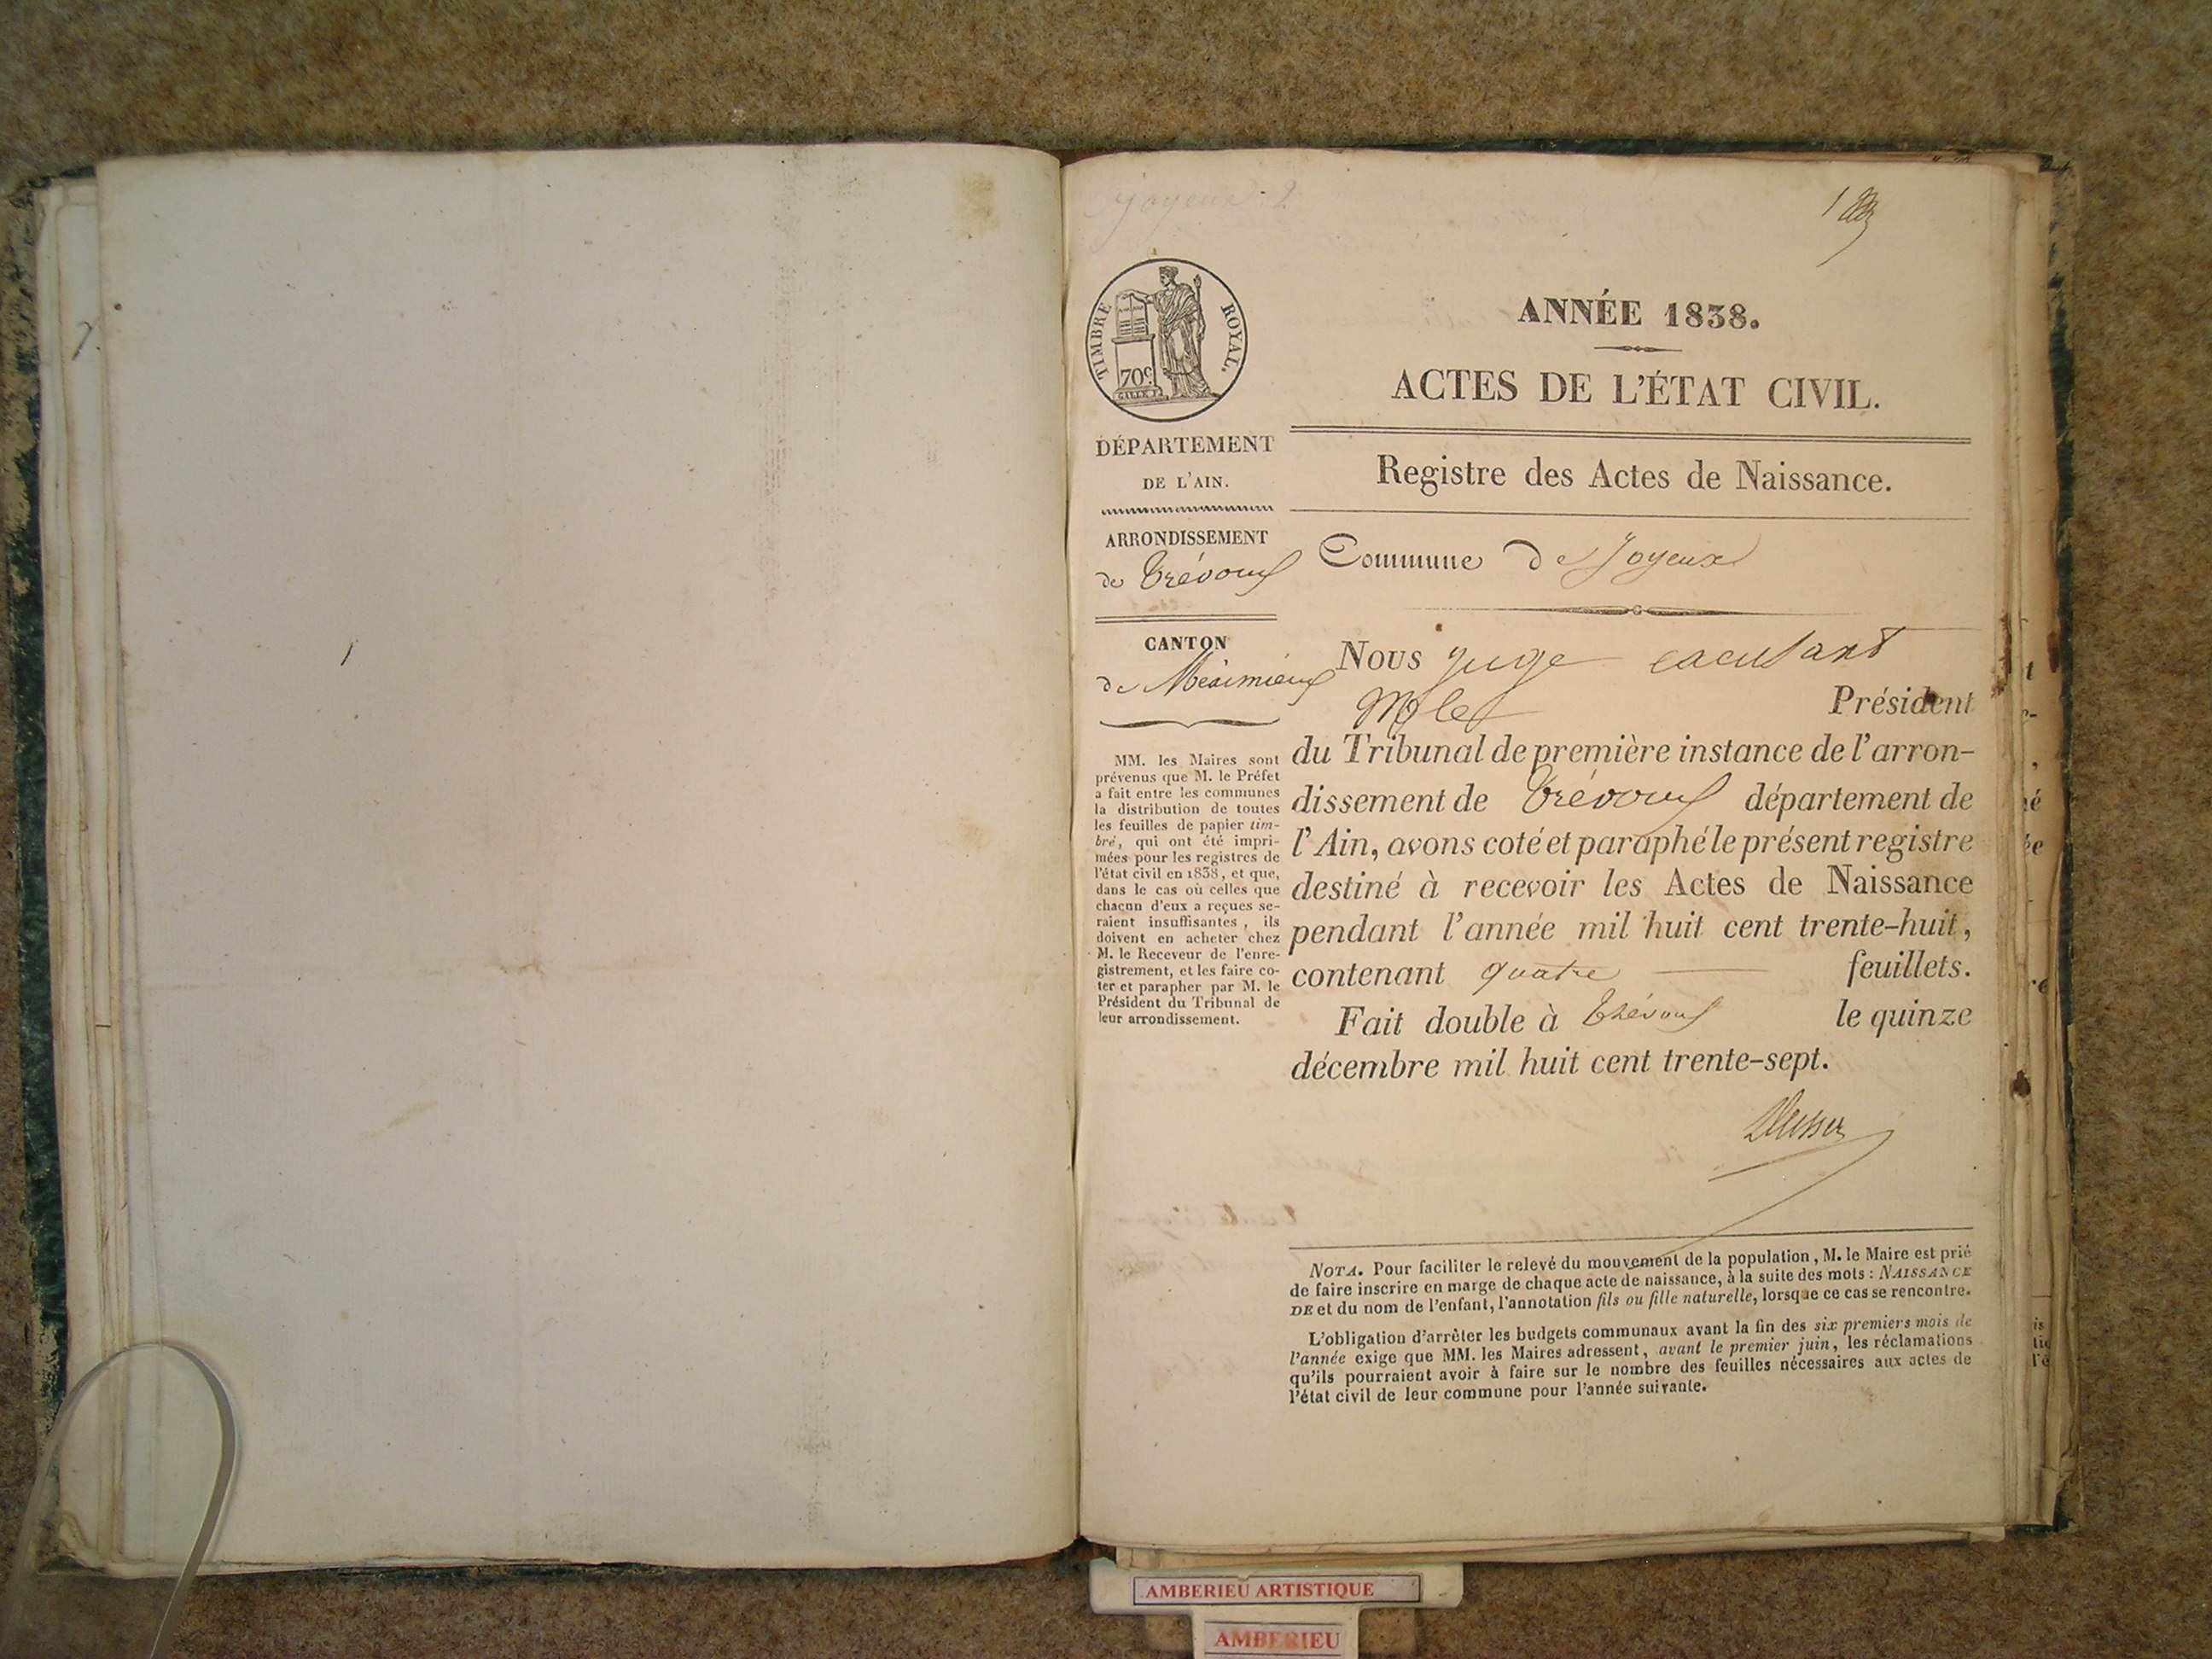 Joyeux 2
1
TIMBRE ROYAL.
70c
ANNÉE 1838.
ACTES DE L'ÉTAT CIVIL.
DÉPARTEMENT
DE L'AIN.
ARRONDISSEMENT
de Trévoux
CANTON
de Meximieux
MM. les Maires sont
prévenus que M. le Préfet
a fait entre les communes
la distribution de toutes
les feuilles de papier tim-
bré, qui ont été impri-
mées pour les registres de
l'état civil en 1838, et que,
dans le cas où celles que
chacun d'eux a reçues se-
raient insuffisantes, ils
doivent en acheter chez
M. le Receveur de l'enre-
gistrement, et les faire co-
ter et parapher par M. le
Président du Tribunal de
leur arrondissement.
Registre des Actes de Naissance.
Commune de Joyeux
Nous juge
Président
du Tribunal de première instance de l'arron-
dissement de Trévoux département de
l'Ain, avons coté et paraphé le présent registre
destiné à recevoir les Actes de Naissance
pendant l'année mil huit cent trente-huit,
contenant quatre feuillets.
Fait double à Trévoux le quinze
décembre mil huit cent trente-sept.
NOTA. Pour faciliter le relevé du mouvement de la population, M. le Maire est prié
de faire inscrire en marge de chaque acte de naissance, à la suite des mots : NAISSANCE
DE et du nom de l'enfant, l'annotation fils ou fille naturelle, lorsque ce cas se rencontre.
L'obligation d'arrêter les budgets communaux avant la fin des six premiers mois de
l'année exige que MM. les Maires adressent, avant le premier juin, les réclamations
qu'ils pourraient avoir à faire sur le nombre des feuilles nécessaires aux actes de
l'état civil de leur commune pour l'année suivante.
AMBERIEU ARTISTIQUE
AMBERIEU